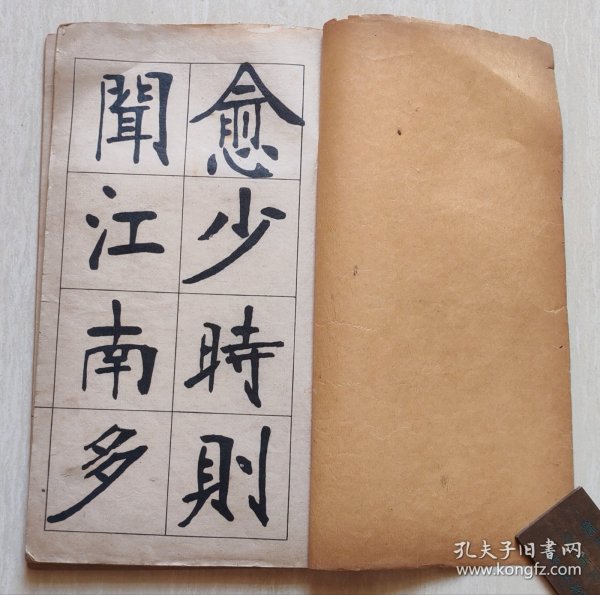 愈少時則
聞江南多
孔夫子旧書网
www.kongfz.com